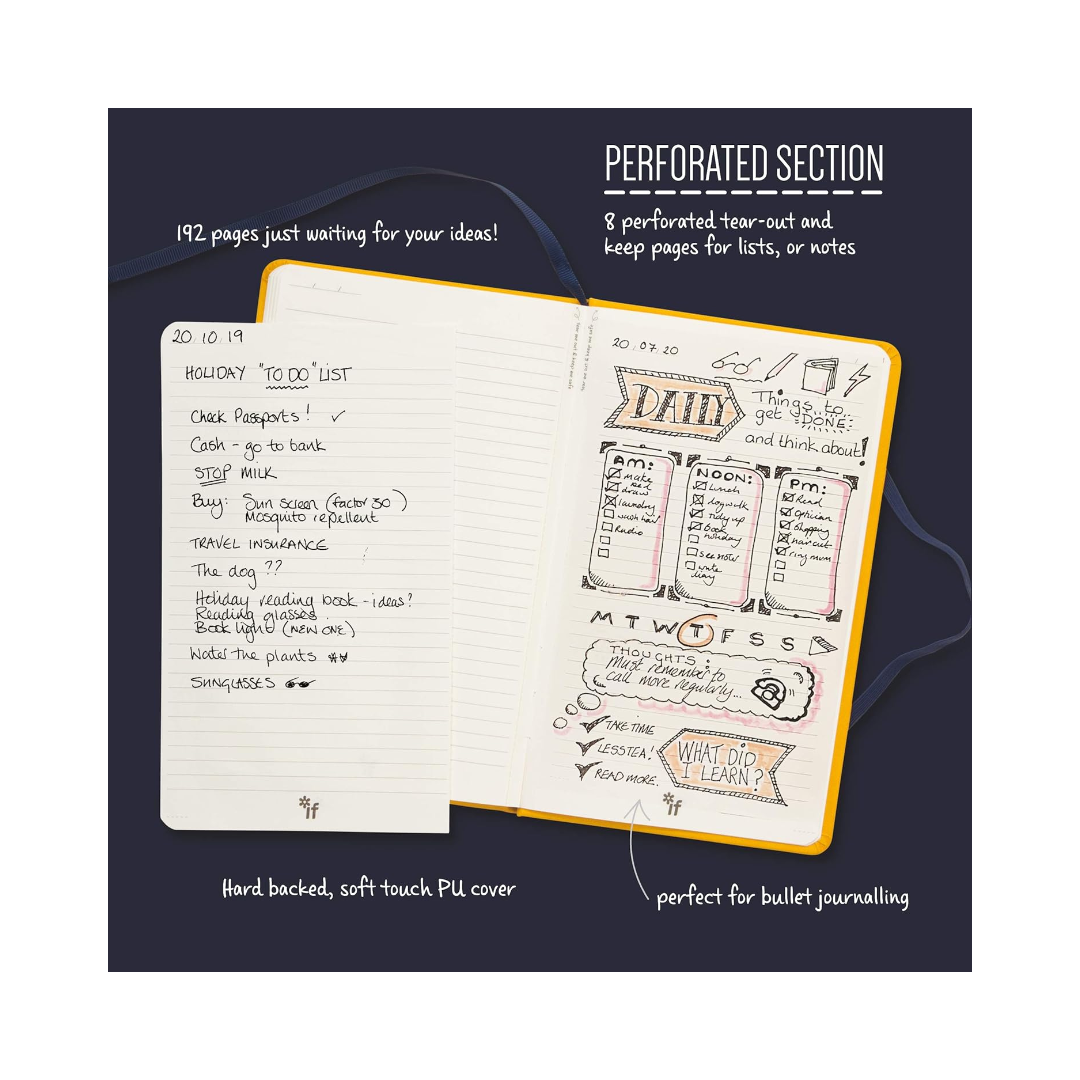 PERFORATED SECTION
192 pages just waiting for your ideas!
8 perforated tear-out and
keep pages for lists, or notes
20.10.19
HOLIDAY "TO DO" LIST
Check Passports! ✓
Cash - go to bank
STOP MILK
Buy: Sun screen (factor 30)
Mosquito repellent
TRAVEL INSURANCE
The dog ??
Holiday reading book - ideas?
Reading glasses.
Book light (NEW ONE)
Water the plants
SUNGLASSES
*if
20.07.20
DAILY
Things to
get DONE
and think about!
AM:
make
bed
draw
laundry
wash hair
Radio
NOON:
Lunch
dogwalk
Tidy up
Book
holiday
see
write
PM:
Read
Optician
Shopping
haircut
ring mum
M T W T F S S
THOUGHTS:
Must remember to
call more regularly...
TAKE TIME
LESS TEA!
READ MORE.
WHAT DID
I LEARN?
*if
Hard backed, soft touch PU cover
perfect for bullet journalling